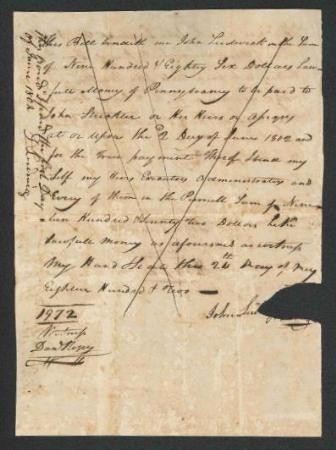 This Bill bindeth me John Ludwick in the Sum
of Nine Hundred & Eighty Six Dollars Law
full Money of Pennsylvaney to be paid to
John Strickler or Her Heirs or Asigns
at or Upon the 2 Day of June 1802 and
for the True payment thereof I bind my
Self my heirs Executors & administrators and
Every of them in the Pennell Sum of Nine
teen Hundred & Seventy two Dollars Like
Lawfull Money as afoursaid as witness
My Hand & Seal this 24th Day of May
Eighteen Hundred & Two
John Lud
1972
Witness
Danl
of June 1802